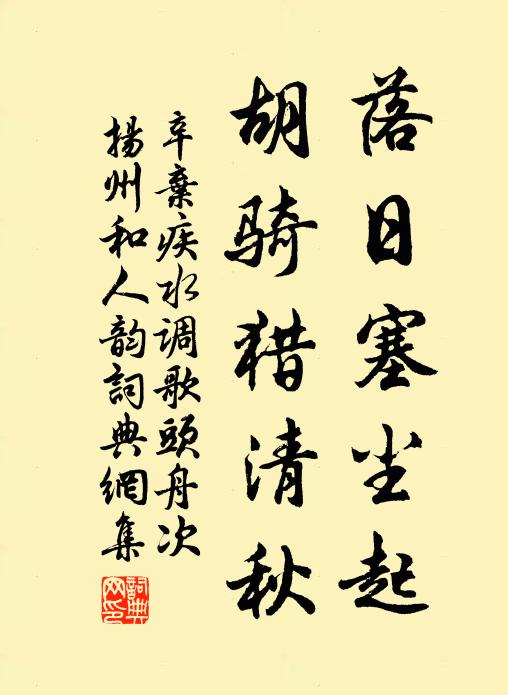 落日塞尘起
胡骑猎清秋
辛棄疾水调歌頭舟次
揚州和人韵詞典網集
詞典网印